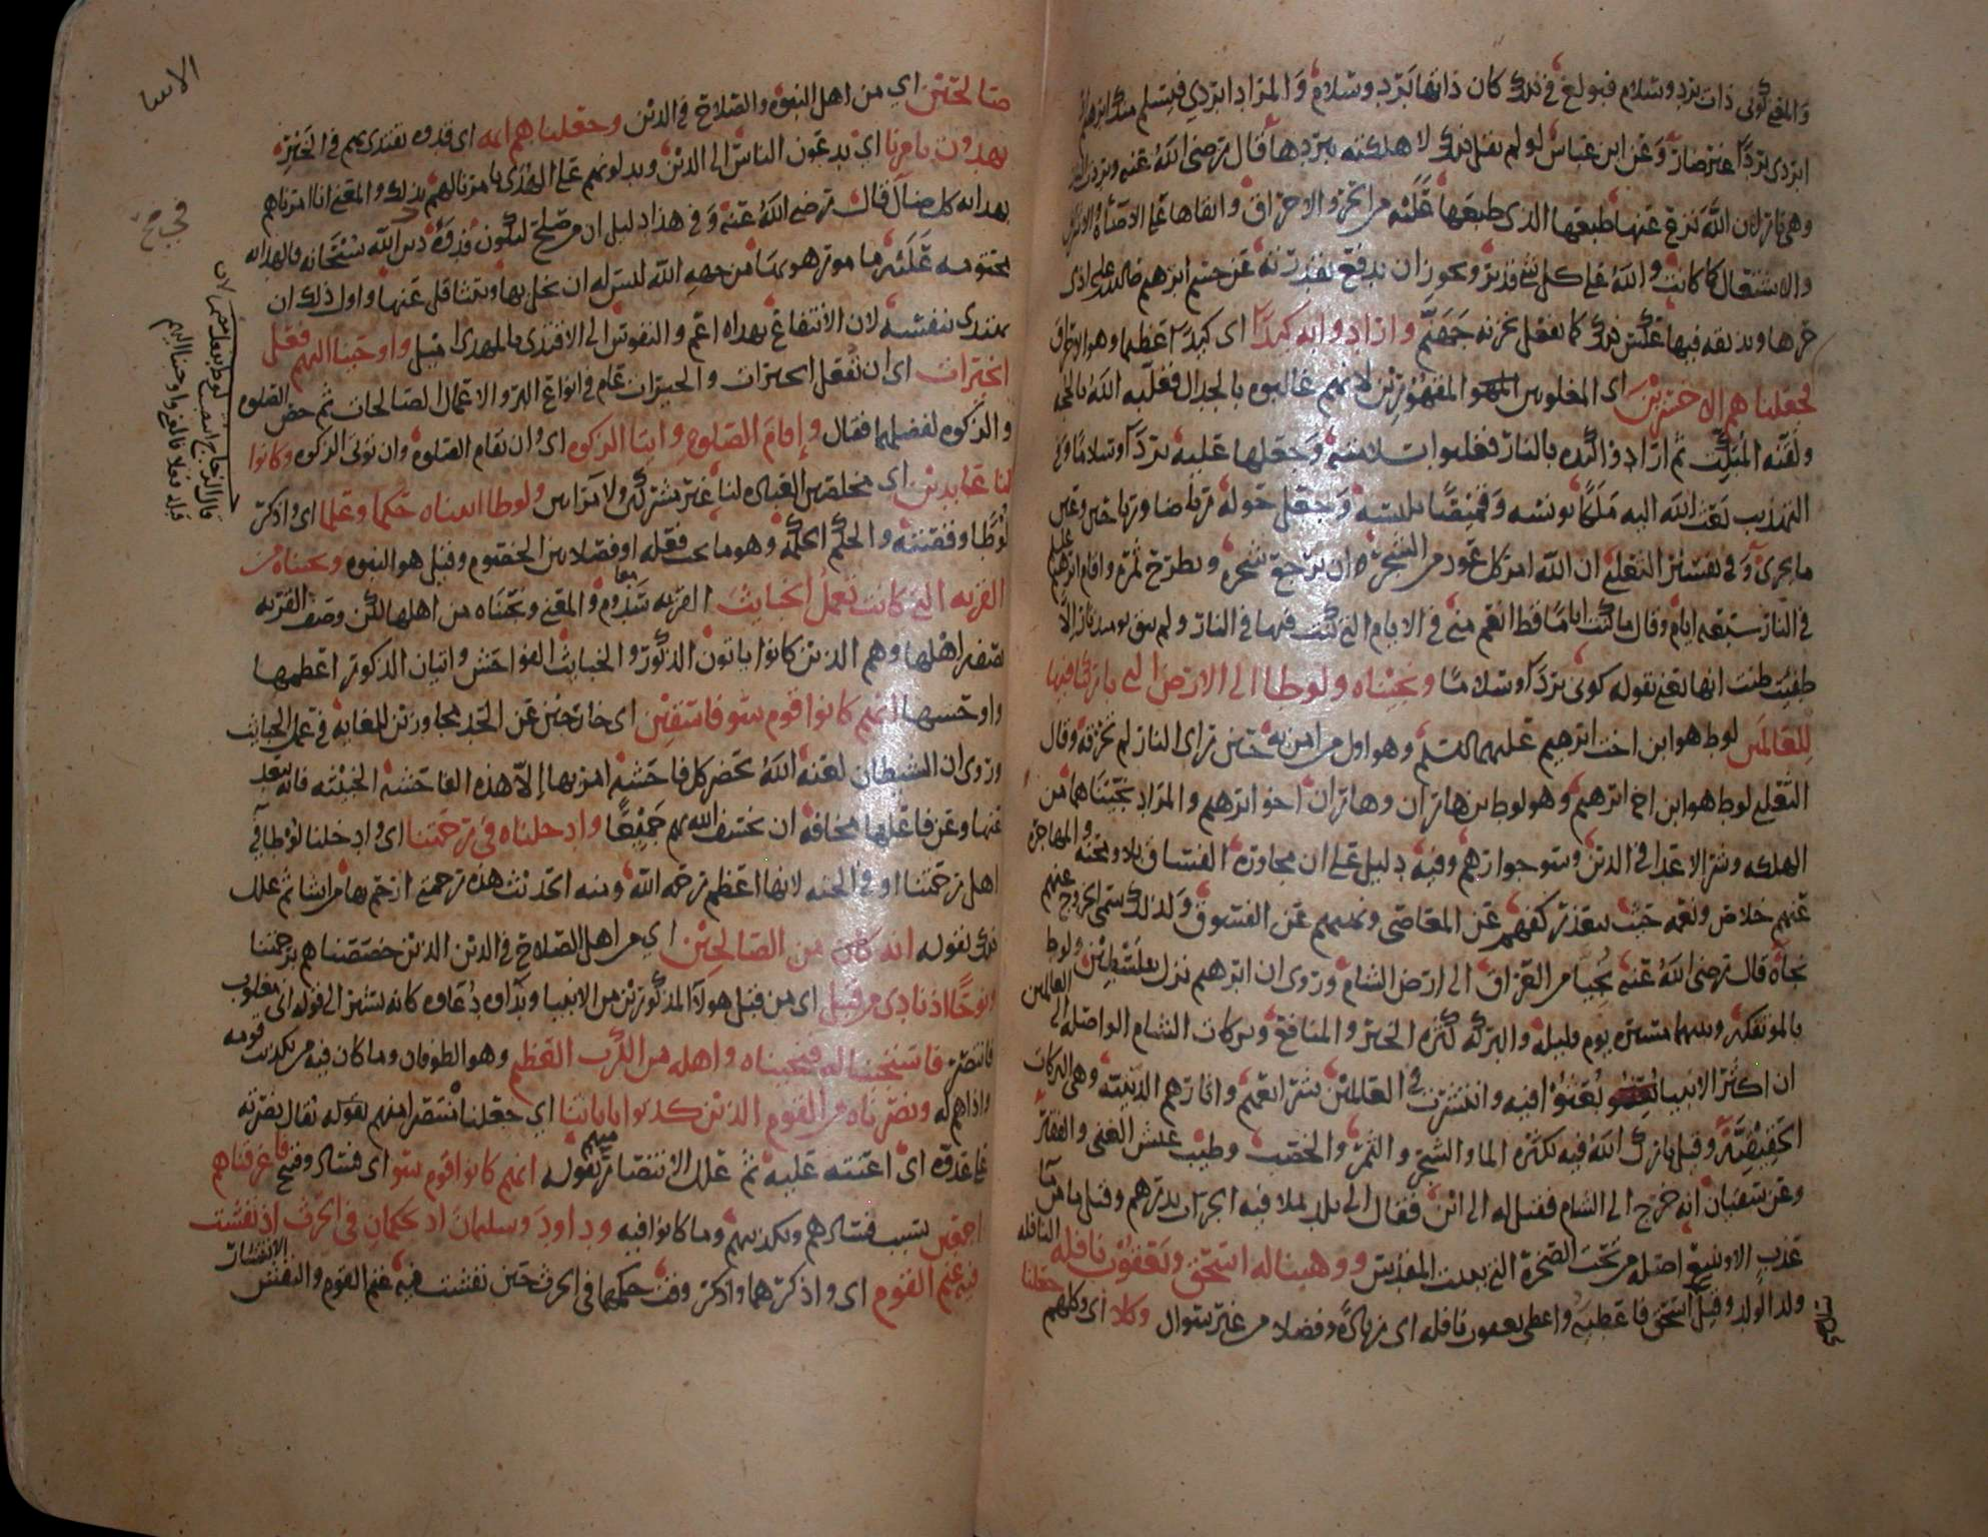 والمعنى كوني ذات برد وسلام فبولغ في ذلك كان ذاتها برد وسلام والمراد ابردي فيسلم منك ابرهيم او
ابردي بردا غير ضار وعن ابن عباس لو لم يقل ذلك لاهلكته ببردها قال رضى الله عنه
وهي نار لان الله نزع عنها طبعها الذي طبعها عليه من الحر والاحراق وابقاها على الاضاة والاشراق
والاشتعال كما كانت والله على كل شي قدير ويجوز ان يدفع بقدرته عن جسم ابرهيم صلى الله عليه اذى
حرها ويذيقه فيها عكس ذلك كما يفعل بخزنة جهنم وارادوا به كيدا اى كيدا عظيما وهو الاحراق
فجعلناهم الاخسرين اى المغلوبين المقهورين لانهم غالبوه بالجدال فغلبه الله بالحجة
ولقنه المبكت ثم ارادوا كيده بالنار فغلبوا بسلامته وجعلها عليه بردا وسلاما وفي
التهذيب بعث الله اليه ملكا يونسه وقميصا يلبسه وجعل حوله رياضا ورياحين وعين
ما يجرى وفي تفسير الثعلبي ان الله امر كل عود من الشجرة ان يرجع شجره ويطرح ثمره واقام ابرهيم
في النار سبعة ايام وقال ما كنت اياما قط انعم مني في الايام التي كنت فيها في النار ولم يبق يوميذ نار الا
طفيت ظنت انها تعني بقوله كوني بردا وسلاما ونجيناه ولوطا الى الارض التي باركنا فيها
للعالمين لوط هو ابن اخت ابرهيم عليهما السلم وهو اول من امن به حين راى النار لم تحرقه وقال
الثعلبي لوط هو ابن اخ ابرهيم وهو لوط بن هاران وهاران اخو ابرهيم والمراد نجيناهما من
الهلكه وشر الاعدا في الدين وسو جوارهم وفيه دليل على ان مجاورة الفساق بلا ومحنة والمهاجرة
عنهم خلاص ونعمه حيث يتعذر كفهم عن المعاصي ونهيهم عن الفسوق ولذلك سمى الخروج عنهم
نجاة قال رضى الله عنه نجيا من العراق الى ارض الشام وروى ان ابرهيم نزل بفلسطين ولوط
بالموتفكة وبينهما مسيرة يوم وليلة والبركة كثرة الخير والمنافع وبركات الشام الواصلة الى العالمين
ان اكثر الانبيا بعثوا فيه وانتشرت في العالمين شرايعهم واثارهم الدينية وهي البركات
الحقيقية وقيل بارك الله فيه بكثرة الما والشجر والثمر والخصب وطيب عيش الغني والفقير
وعن سفيان انه خرج الى الشام فقيل له الى اين فقال الى بلد يملا فيه الجراب بدرهم وقيل ما من ما
عذب الا وينبع اصله من تحت الصخرة التي ببيت المقدس ووهبنا له اسحق ويعقوب نافلة النافلة
ولد الولد وقيل اسحق فاعطيه واعطى يعقوب نافلة اى زيادة وفضلا من غير سوال وكلا اى وكلهم جعلنا
الانبيا
صالحين اي من اهل النبوة والصلاح في الدين وجعلناهم ايمه اى قدوه يقتدى بهم في الخير
يهدون بامرنا اي يدعون الناس الى الدين ويدلونهم على الهدى بامرنا لهم بذلك والمعنى انا امرناهم
بهداية كل ضال قال رضى الله عنه وفي هذا دليل ان من صلح ليكون قدوة في دين الله سبحانه فالهداية
محتومه عليه مامور هو بها من جهة الله ليس له ان يخل بها ويتثاقل عنها واول ذلك ان
يهتدى بنفسه لان الانتفاع بهداه اعم والنفوس الى الاقتدى بالمهدى اميل واوحينا اليهم فعل
الخيرات اى ان تفعل الخيرات والخيرات عام في انواع البر والاعمال الصالحات ثم خص الصلوه
والزكوه لفضلهما فقال وإقام الصلوة وايتا الزكوه اى وان تقام الصلوة وان توتى الزكوه وكانوا
لنا عابدين اى مخلصين العبادة لنا غير مشركين ولا مرايين ولوطا اتيناه حكما وعلما اى واذكر
لوطا وقصته والحكم الحكمة وهو ما يجب فعله او فصلا بين الخصوم وقيل هو النبوه ونجيناه من
القريه التي كانت تعمل الخبايث القريه سدوم والمعنى ونجيناه من اهلها لكن وصف القريه
بصفة اهلها وهم الذين كانوا ياتون الذكور والخبايث الفواحش واتيان الذكور اعظمها
واوحشها انهم كانوا قوم سو فاسقين اى خارجين عن الحد مجاوزين للغاية في عمل الخبايث
وروى ان الشيطان لعنه الله يحضر كل فاحشة امر بها إلا هذه الفاحشة الخبيثه فانه يبعد
عنها وعن فاعلها مخافة ان يخسف الله بهم جميعا وادخلناه في رحمتنا اى وادخلنا لوطا في
اهل رحمتنا او في الجنه لانها اعظم رحمة الله ومنه الحديث هذه رحمتي ارحم بها من اشا ثم علل
ذلك بقوله انه كان من الصالحين اي من اهل الصلاح في الدين الذين خصصناهم برحمتنا
ونوحا اذ نادى من قبل اى من قبل هولا المذكورين من الانبيا ونداوه دعاوه كانه يشير الى قوله انى مغلوب
فانتصر فاستجبنا له فنجيناه واهله من الكرب العظيم وهو الطوفان وما كان فيه من تكذيب قومه
واذاهم له ونصرناه من القوم الذين كذبوا باياتنا اي جعلنا منتصرا منهم بقوله تقال نصرته
على عدوه اى اعنته عليه ثم علل الانتصار منهم بقوله انهم كانوا قوم سو اى فساد وقبح فاغرقناهم
اجمعين بسبب فسادهم وتكذيبهم وما كانوا فيه وداود وسليمان اذ يحكمان في الحرث اذ نفشت
فيه غنم القوم اى واذكرهما واذكر وقت حكمهما في الحرث حين نفشت فيه غنم القوم والنفش الانتشار